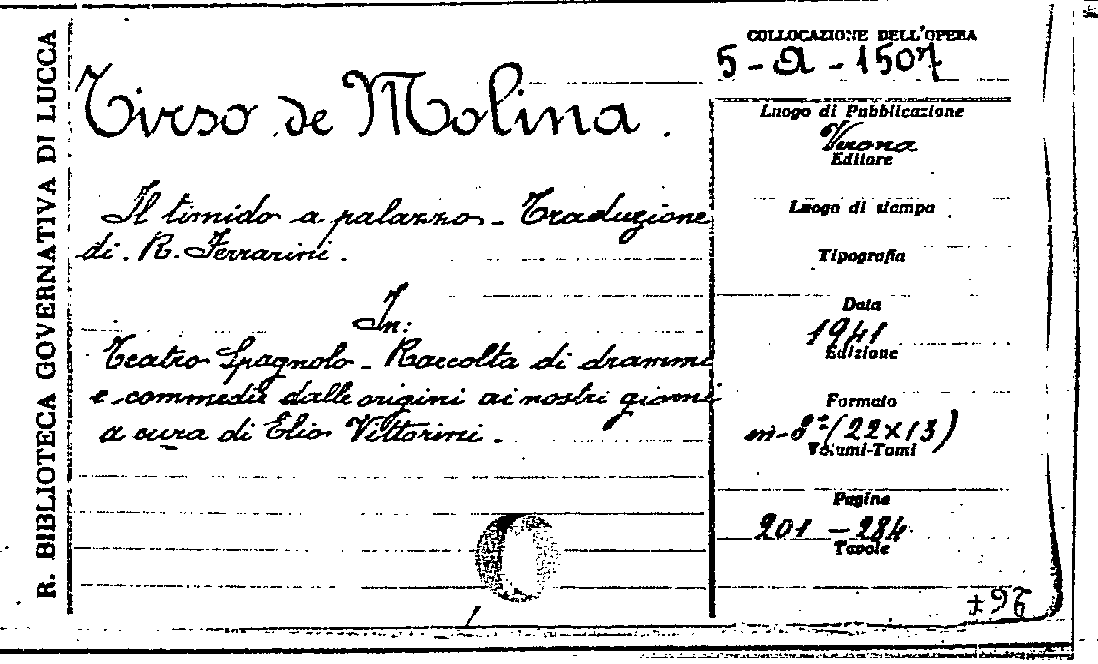 R. BIBLIOTECA GOVERNATIVA DI LUCCA
Tirso de Molina.
Il timido a palazzo - Traduzione
di R. Ferrarini.
In:
Teatro Spagnolo - Raccolta di drammi
e commedie dalle origini ai nostri giorni
a cura di Elio Vittorini.
COLLOCAZIONE DELL'OPERA
5-A-1507
Luogo di Pubblicazione
Verona
Editore
Luogo di stampa
Tipografia
Data
1941
Edizione
Formato
in-8º (22x13)
Volumi-Tomi
Pagine
201 - 284
Tavole